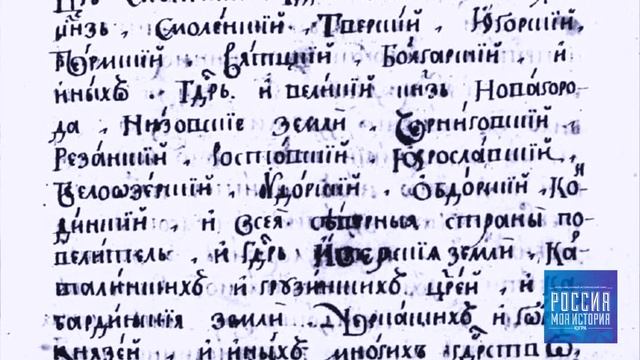 кн҃зь, Смоленскїй, Тверскїй, Югорскїй,
Пермскїй, Вятцкїй, Болгарскїй, и
иныхъ. Гдрь. и великїй кн҃зь Новагоро-
да, Низовскїе земли, Черниговскїй,
Резанскїй, Ростовскїй, Ярославскїй,
Белоозерскїй, Удорскїй, Обдорскїй, Ко-
динскїй, и всея северныя страны по-
велитель, и Гдрь Иверскїя земли, Ка-
талинскихъ и грузинскихъ, црей, и Ка-
бардинскїя земли. Черкаскихъ и Го-
князей, и иныхъ многихъ гдрствъ,
РОССИЯ
МОЯ ИСТОРИЯ
ЮГРА